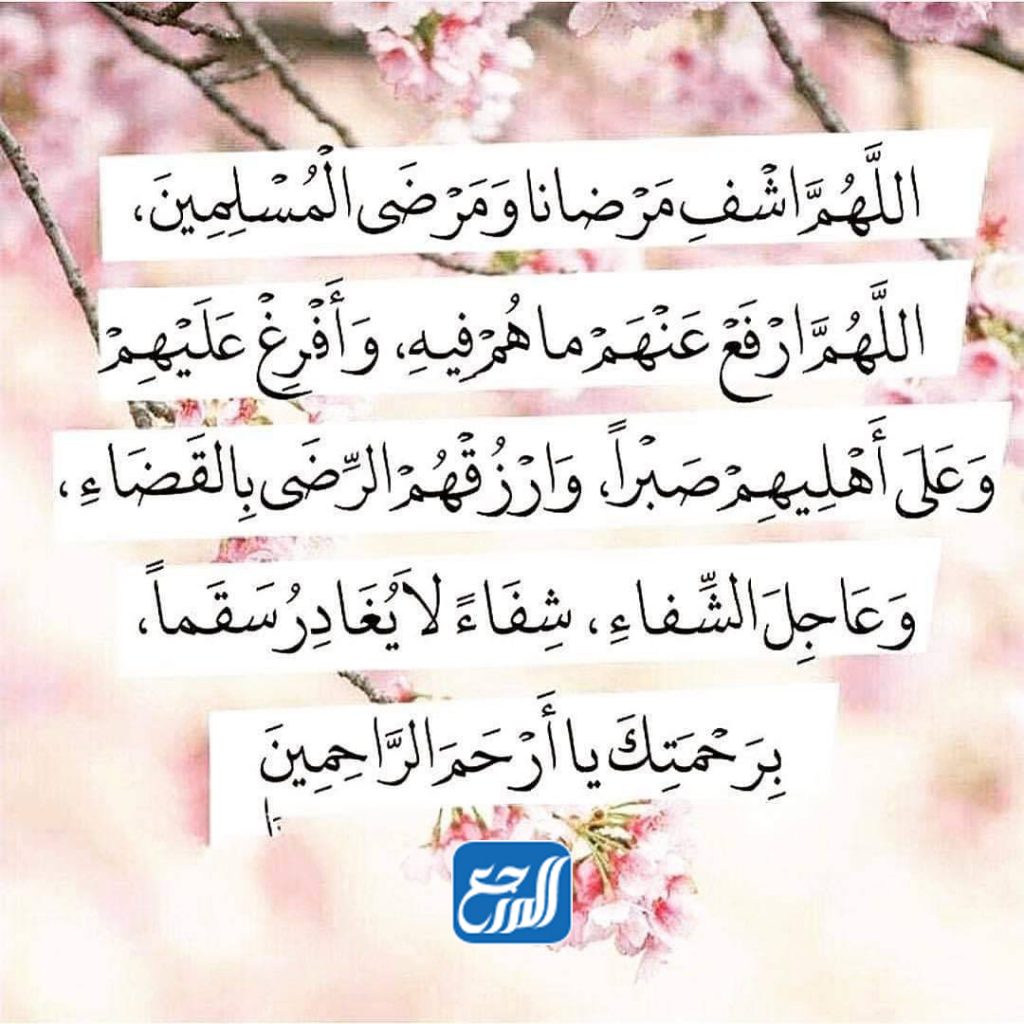 اللَّهُمَّ اشْفِ مَرْضانا وَمَرْضَى الْمُسْلِمِينَ،
اللَّهُمَّ ارْفَعْ عَنْهَمْ ما هُمْ فِيهِ، وَأَفْرِغْ عَلَيْهِمْ
وَعَلَى أَهْلِيهِمْ صَبْراً، وَارْزُقْهُمْ الرِّضَى بِالقَضَاءِ،
وَعَاجِلَ الشِّفاءِ، شِفَاءً لاَ يُغَادِرُ سَقَماً،
بِرَحْمَتِكَ يا أَرْحَمَ الرَّاحِمِينَ
المرجع